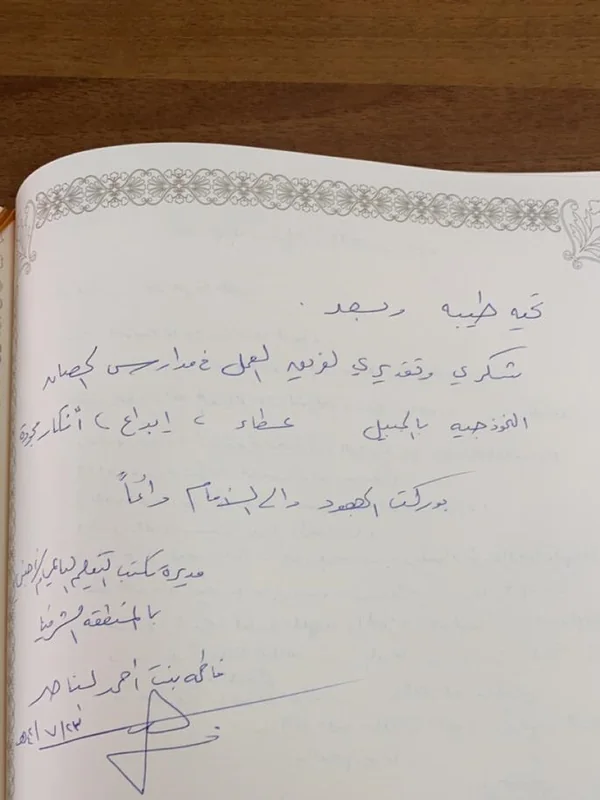 تحيه طيبه وبعد .
شكري وتقديري لفريق العمل في مدارس الحصان
النموذجيه بالجبيل عطاء ، إبداع ، أفكار مجودة
بوركت الجهود والى الأمام دائماً
مديرة مكتب التعليم
بالمنطقه الشرقية
فاطمه بنت أحمد الناصر